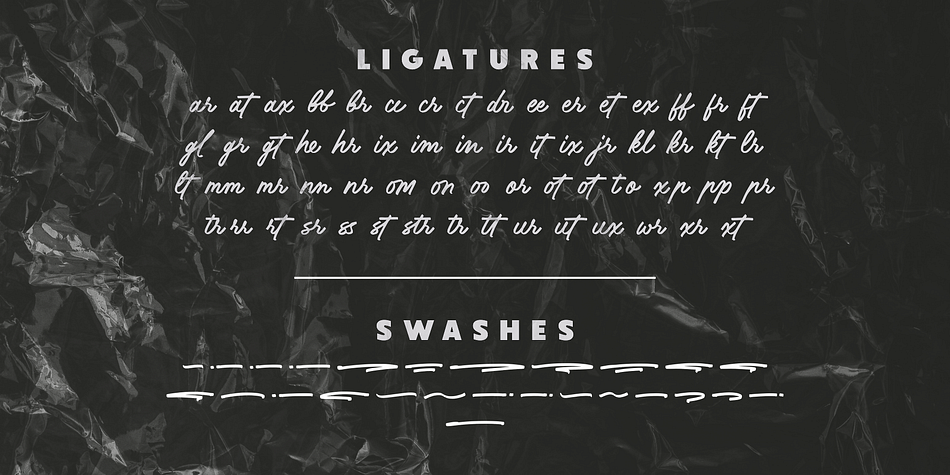 LIGATURES
ar at ax bb br cc cr ct dr ee er et ex ff fr ft
gl gr gt he hr ix im in ir it ix jr kl kr kt lr
lt mm mr nn nr om on oo or ot ot to xp pp pr
tr rr rt sr ss st str tr tt ur ut ux wr xr xt
SWASHES